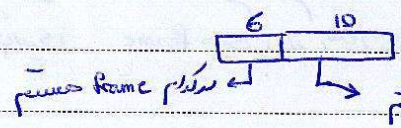 6 10
در کدام frame هستیم